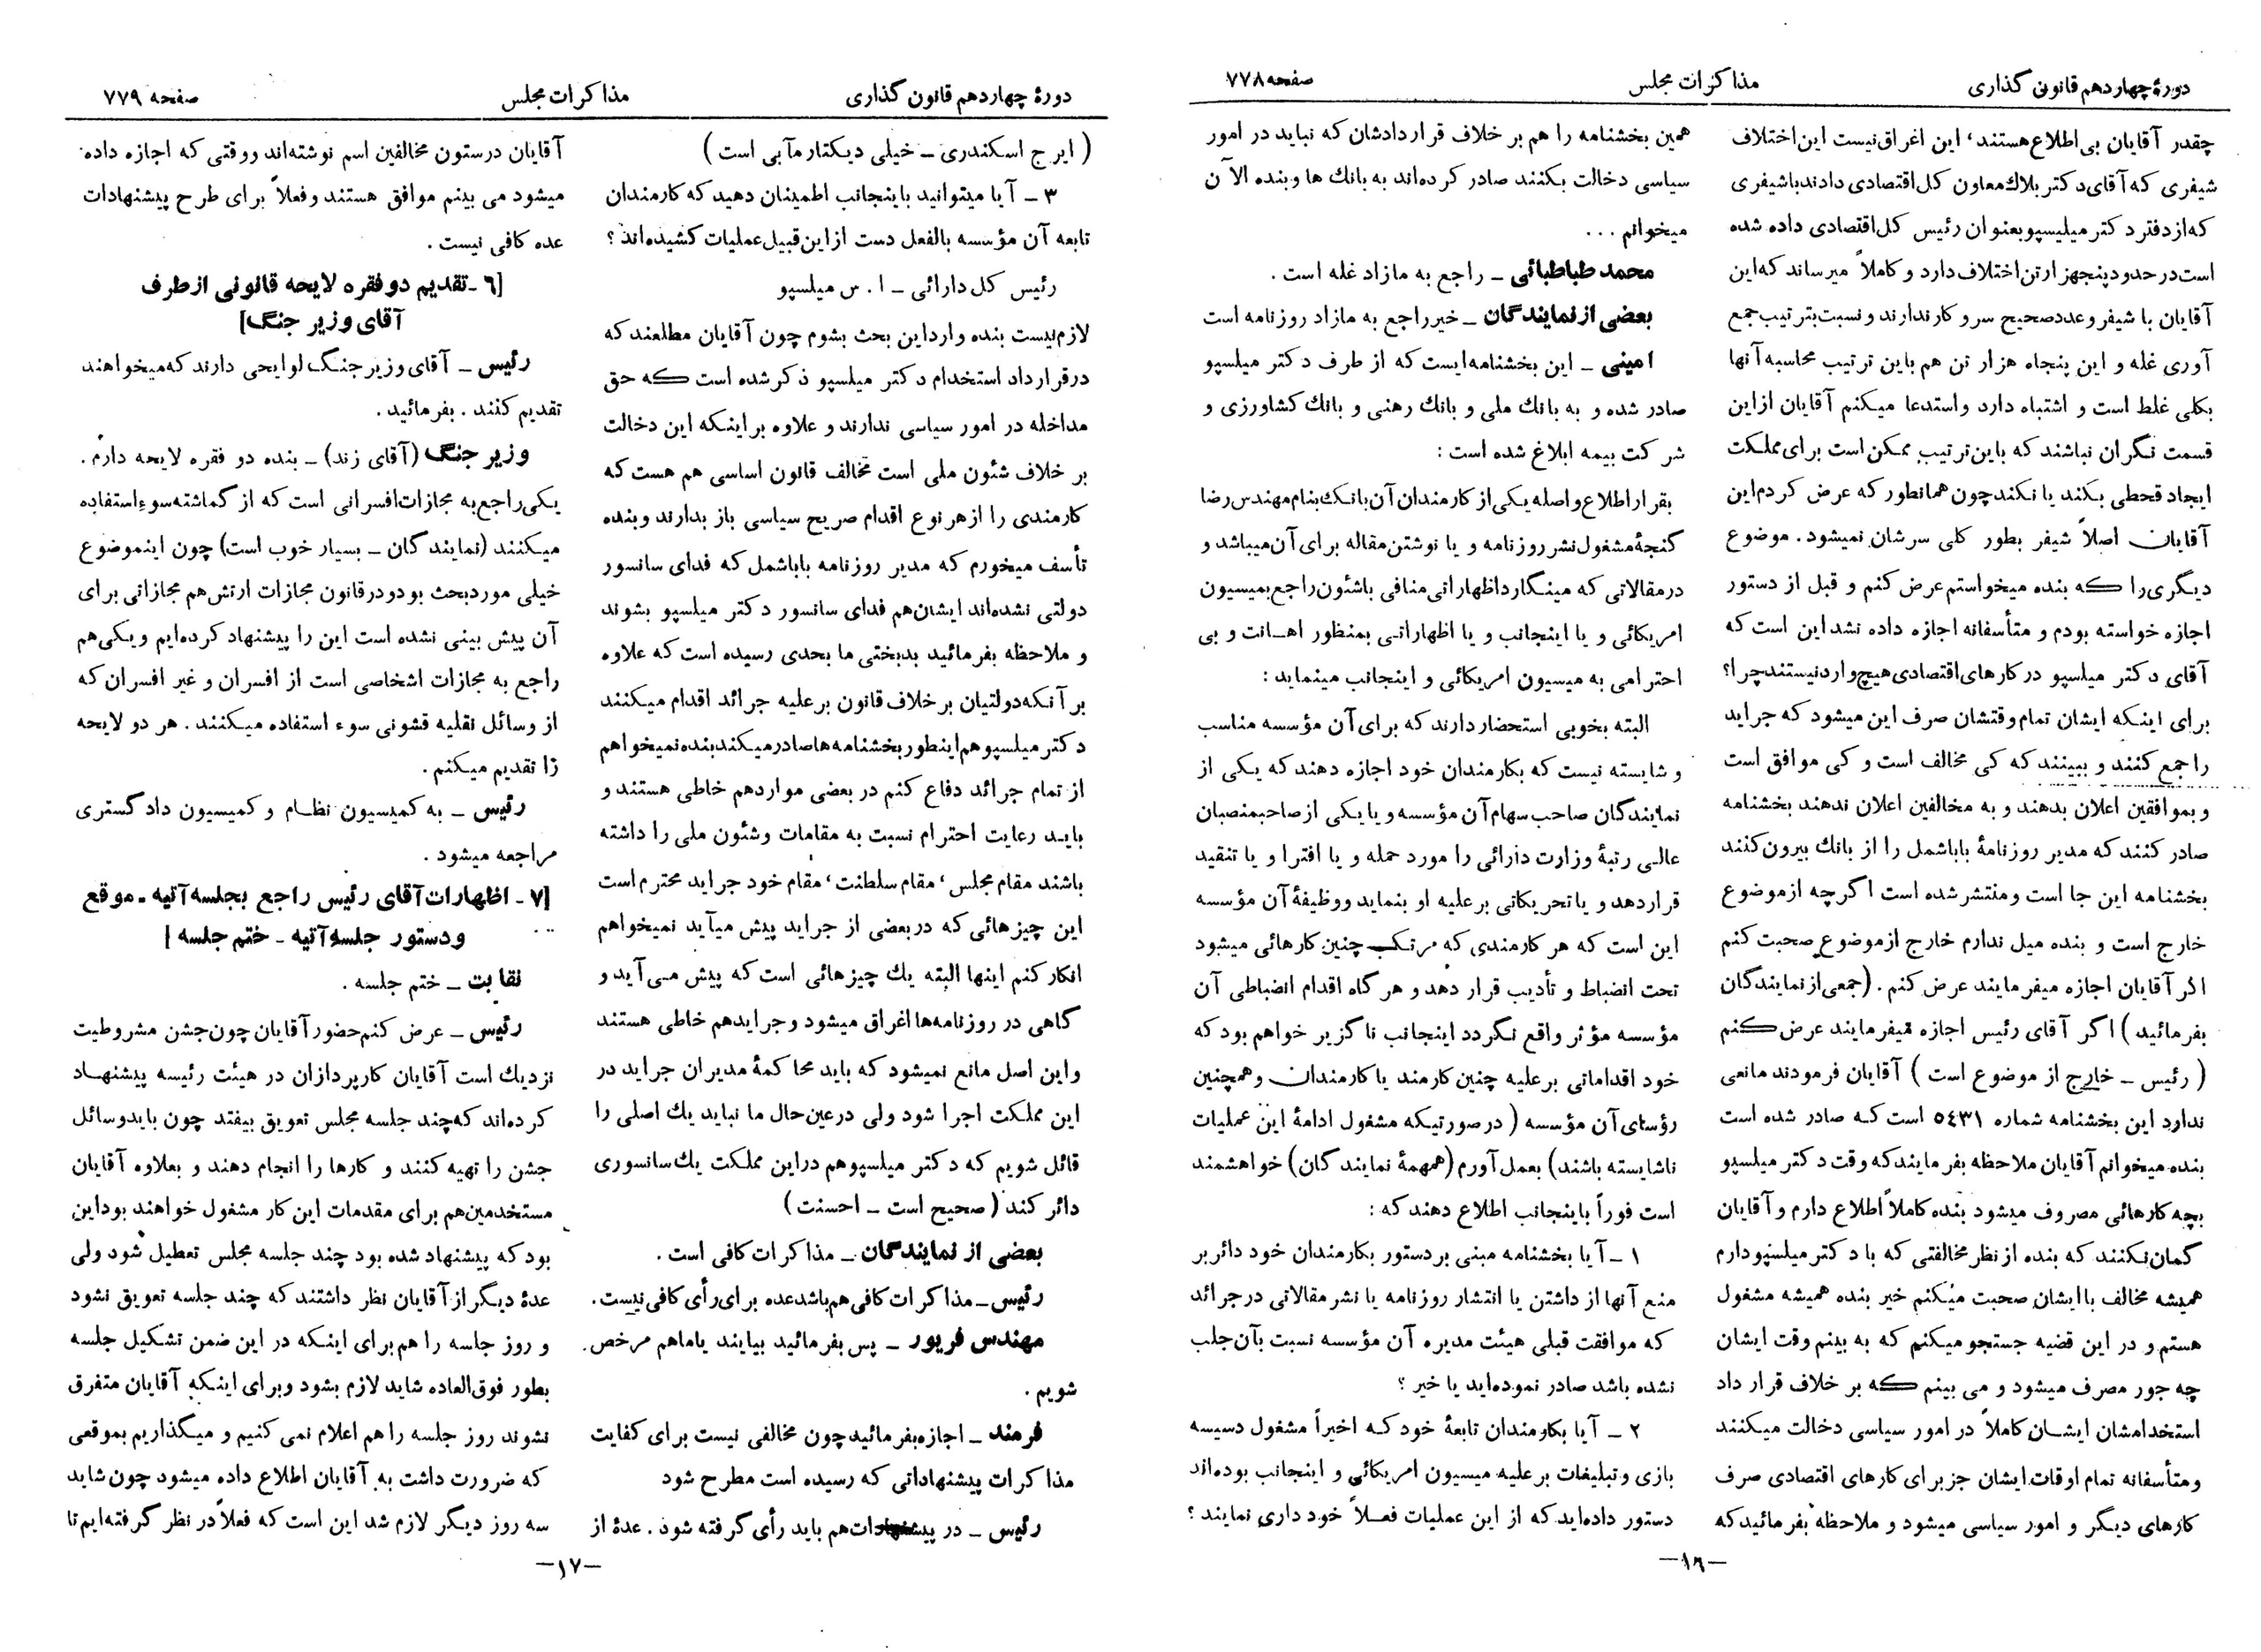 دورهٔ چهاردهم قانون گذاری
مذاکرات مجلس
صفحه ۷۷۸
چقدر آقایان بی اطلاع هستند، این اغراق نیست این اختلاف
شیفری که آقای دکتر بلاك معاون کل اقتصادی دادند با شیفری
که از دفتر دکتر میلیسپو بعنوان رئیس کل اقتصادی داده شده
است در حدود پنجهزار تن اختلاف دارد و کاملاً میرساند که این
آقایان با شیفر و عدد صحیح سر و کار ندارند و نسبت بترتیب جمع
آوری غله و این پنجاه هزار تن هم باین ترتیب محاسبه آنها
بکلی غلط است و اشتباه دارد و استدعا میکنم آقایان از این
قسمت نگران نباشند که باین ترتیب ممکن است برای مملکت
ایجاد قحطی بکند یا نکند چون همانطور که عرض کردم این
آقایان اصلاً شیفر بطور کلی سرشان نمیشود. موضوع
دیگری را که بنده میخواستم عرض کنم و قبل از دستور
اجازه خواسته بودم و متأسفانه اجازه داده نشد این است که
آقای دکتر میلسپو در کارهای اقتصادی هیچ وارد نیستند چرا؟
برای اینکه ایشان تمام وقتشان صرف این میشود که جراید
را جمع کنند و ببینند که کی مخالف است و کی موافق است
و بموافقین اعلان بدهند و به مخالفین اعلان ندهند بخشنامه
صادر کنند که مدیر روزنامهٔ باباشمل را از بانك بیرون کنند
بخشنامه این جا است و منتشر شده است اگرچه از موضوع
خارج است و بنده میل ندارم خارج از موضوع صحبت کنم
اگر آقایان اجازه میفرمایند عرض کنم. (جمعی از نمایندگان
بفرمائید) اگر آقای رئیس اجازه میفرمایند عرض کنم
(رئیس ــ خارج از موضوع است) آقایان فرمودند مانعی
ندارد این بخشنامه شماره ٥٤٣١ است که صادر شده است
بنده میخوانم آقایان ملاحظه بفرمایند که وقت دکتر میلسپو
بچه کارهائی مصروف میشود بنده کاملاً اطلاع دارم و آقایان
گمان نکنند که بنده از نظر مخالفتی که با دکتر میلسپو دارم
همیشه مخالف با ایشان صحبت میکنم خیر بنده همیشه مشغول
هستم و در این قضیه جستجو میکنم که به بینم وقت ایشان
چه جور مصرف میشود و می بینم که بر خلاف قرار داد
استخدامشان ایشان کاملاً در امور سیاسی دخالت میکنند
و متأسفانه تمام اوقات ایشان جز برای کارهای اقتصادی صرف
کارهای دیگر و امور سیاسی میشود و ملاحظه بفرمائید که
همین بخشنامه را هم بر خلاف قراردادشان که نباید در امور
سیاسی دخالت بکنند صادر کرده‌اند به بانك ها و بنده الآن
میخوانم ...
محمد طباطبائی ــ راجع به مازاد غله است .
بعضی از نمایندگان ــ خیر راجع به مازاد روزنامه است
امینی ــ این بخشنامه‌ایست که از طرف دکتر میلسپو
صادر شده و به بانك ملی و بانك رهنی و بانك کشاورزی و
شرکت بیمه ابلاغ شده است :
بقرار اطلاع واصله یکی از کارمندان آن بانک بنام مهندس رضا
گنجهٔ مشغول نشر روزنامه و یا نوشتن مقاله برای آن میباشد و
در مقالاتی که مینگارد اظهاراتی منافی باشئون راجع بمیسیون
امریکائی و یا اینجانب و یا اظهاراتی بمنظور اهانت و بی
احترامی به میسیون امریکائی و اینجانب مینماید :
البته بخوبی استحضار دارند که برای آن مؤسسه مناسب
و شایسته نیست که بکارمندان خود اجازه دهند که یکی از
نمایندگان صاحب سهام آن مؤسسه و یا یکی از صاحبمنصبان
عالی رتبهٔ وزارت دارائی را مورد حمله و یا افترا و یا تنقید
قرار دهد و یا تحریکاتی بر علیه او بنماید و وظیفهٔ آن مؤسسه
این است که هر کارمندی که مرتکب چنین کارهائی میشود
تحت انضباط و تأدیب قرار دهد و هرگاه اقدام انضباطی آن
مؤسسه مؤثر واقع نگردد اینجانب ناگزیر خواهم بود که
خود اقداماتی بر علیه چنین کارمند یا کارمندان و همچنین
رؤسای آن مؤسسه (در صورتیکه مشغول ادامهٔ این عملیات
ناشایسته باشند) بعمل آورم (همهمهٔ نمایندگان) خواهشمند
است فوراً باینجانب اطلاع دهند که :
١ ــ آیا بخشنامه مبنی بر دستور بکارمندان خود دائر بر
منع آنها از داشتن یا انتشار روزنامه یا نشر مقالاتی در جرائد
که موافقت قبلی هیئت مدیره آن مؤسسه نسبت بآن جلب
نشده باشد صادر نموده‌اید یا خیر ؟
٢ ــ آیا بکارمندان تابعهٔ خود که اخیراً مشغول دسیسه
بازی و تبلیغات بر علیه میسیون امریکائی و اینجانب بوده‌اند
دستور داده‌اید که از این عملیات فعلاً خود داری نمایند ؟
ــ١٦ــ
دورهٔ چهاردهم قانون گذاری
مذاکرات مجلس
صفحه ۷۷۹
(ایرج اسکندری ــ خیلی دیکتار مآبی است)
٣ ــ آیا میتوانید باینجانب اطمینان دهید که کارمندان
تابعه آن مؤسسه بالفعل دست از این قبیل عملیات کشیده‌اند ؟
رئیس کل دارائی ــ ا . س میلسپو
لازم نیست بنده وارد این بحث بشوم چون آقایان مطلعند که
در قرارداد استخدام دکتر میلسپو ذکر شده است که حق
مداخله در امور سیاسی ندارند و علاوه بر اینکه این دخالت
بر خلاف شئون ملی است مخالف قانون اساسی هم هست که
کارمندی را از هر نوع اقدام صریح سیاسی باز بدارند و بنده
تأسف میخورم که مدیر روزنامه باباشمل که فدای سانسور
دولتی نشده‌اند ایشان هم فدای سانسور دکتر میلسپو بشوند
و ملاحظه بفرمائید بدبختی ما بحدی رسیده است که علاوه
بر آنکه دولتیان بر خلاف قانون بر علیه جرائد اقدام میکنند
دکتر میلسپو هم اینطور بخشنامه ها صادر میکند بنده نمیخواهم
از تمام جرائد دفاع کنم در بعضی موارد هم خاطی هستند و
باید رعایت احترام نسبت به مقامات و شئون ملی را داشته
باشند مقام مجلس، مقام سلطنت، مقام خود جراید محترم است
این چیزهائی که در بعضی از جراید پیش میآید نمیخواهم
انکار کنم اینها البته یك چیزهائی است که پیش می آید و
گاهی در روزنامه‌ها اغراق میشود و جراید هم خاطی هستند
و این اصل مانع نمیشود که باید محاکمهٔ مدیران جراید در
این مملکت اجرا شود ولی در عین حال ما نباید یك اصلی را
قائل شویم که دکتر میلسپو هم در این مملکت یك سانسوری
دائر کند (صحیح است ــ احسنت)
بعضی از نمایندگان ــ مذاکرات کافی است .
رئیس ــ مذاکرات کافی هم باشد عده برای رأی کافی نیست.
مهندس فریور ــ پس بفرمائید بیایند یا ما هم مرخص
شویم .
فرمند ــ اجازه بفرمائید چون مخالفی نیست برای کفایت
مذاکرات پیشنهاداتی که رسیده است مطرح شود
رئیس ــ در پیشنهادات هم باید رأی گرفته شود . عدهٔ از
آقایان در ستون مخالفین اسم نوشته‌اند و وقتی که اجازه داده
میشود می بینم موافق هستند و فعلاً برای طرح پیشنهادات
عده کافی نیست .
[٦ ـ تقدیم دو فقره لایحه قانونی از طرف
آقای وزیر جنگ]
رئیس ــ آقای وزیر جنگ لوایحی دارند که میخواهند
تقدیم کنند . بفرمائید .
وزیر جنگ (آقای زند) ــ بنده دو فقره لایحه دارم .
یکی راجع به مجازات افسرانی است که از گماشته سوء استفاده
میکنند (نمایندگان ــ بسیار خوب است) چون اینموضوع
خیلی مورد بحث بود و در قانون مجازات ارتش هم مجازاتی برای
آن پیش بینی نشده است این را پیشنهاد کرده‌ایم و یکی هم
راجع به مجازات اشخاصی است از افسران و غیر افسران که
از وسائل نقلیه قشونی سوء استفاده میکنند . هر دو لایحه
را تقدیم میکنم .
رئیس ــ به کمیسیون نظام و کمیسیون دادگستری
مراجعه میشود .
[٧ ـ اظهارات آقای رئیس راجع بجلسه آتیه ـ موقع
و دستور جلسه آتیه ـ ختم جلسه]
نقابت ــ ختم جلسه .
رئیس ــ عرض کنم حضور آقایان چون جشن مشروطیت
نزدیك است آقایان کارپردازان در هیئت رئیسه پیشنهاد
کرده‌اند که چند جلسه مجلس تعویق بیفتد چون باید وسائل
جشن را تهیه کنند و کارها را انجام دهند و بعلاوه آقایان
مستخدمین هم برای مقدمات این کار مشغول خواهند بود این
بود که پیشنهاد شده بود چند جلسه مجلس تعطیل شود ولی
عدهٔ دیگر از آقایان نظر داشتند که چند جلسه تعویق نشود
و روز جلسه را هم برای اینکه در این ضمن تشکیل جلسه
بطور فوق‌العاده شاید لازم بشود و برای اینکه آقایان متفرق
نشوند روز جلسه را هم اعلام نمی کنیم و میگذاریم بموقعی
که ضرورت داشت به آقایان اطلاع داده میشود چون شاید
سه روز دیگر لازم شد این است که فعلاً در نظر گرفته‌ایم تا
ــ١٧ــ